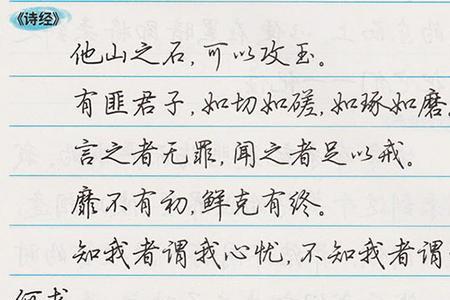 《诗经》
他山之石,可以攻玉。
有匪君子,如切如磋,如琢如磨
言之者无罪,闻之者足以戒。
靡不有初,鲜克有终。
知我者谓我心忧,不知我者谓
何求